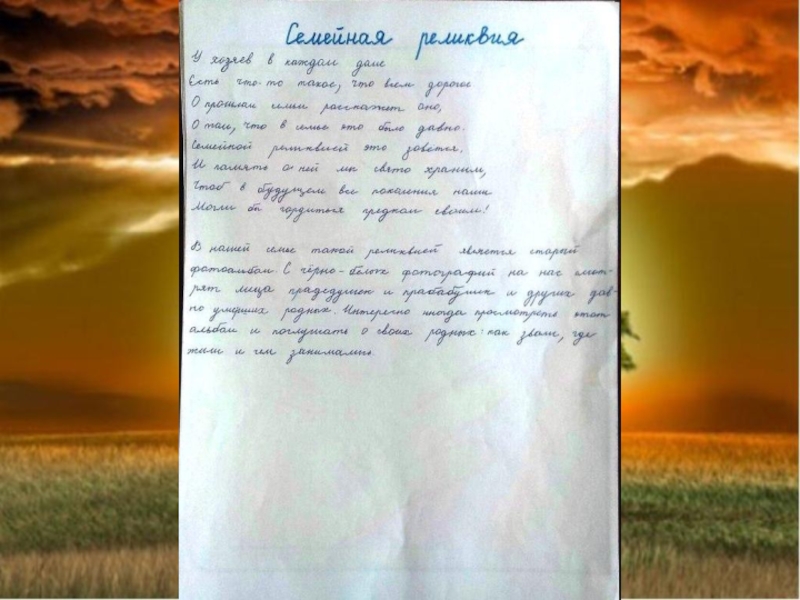 Семейная реликвия
У хозяев в каждом доме
Есть что-то такое, что всем дорогое
О прошлом семьи расскажет оно,
О том, что в семье это было давно.
Семейной реликвией это зовётся.
И память о ней мы свято храним,
Чтоб в будущем все поколения наши
Могли бы гордиться предком своим!
В нашей семье такой реликвией является старый
фотоальбом. С чёрно-белых фотографий на нас смот-
рят лица прадедушек и прабабушек и других дав-
но умерших родных. Интересно иногда просмотреть этот
альбом и послушать о своих родных: как звали, где
жили и чем занимались.